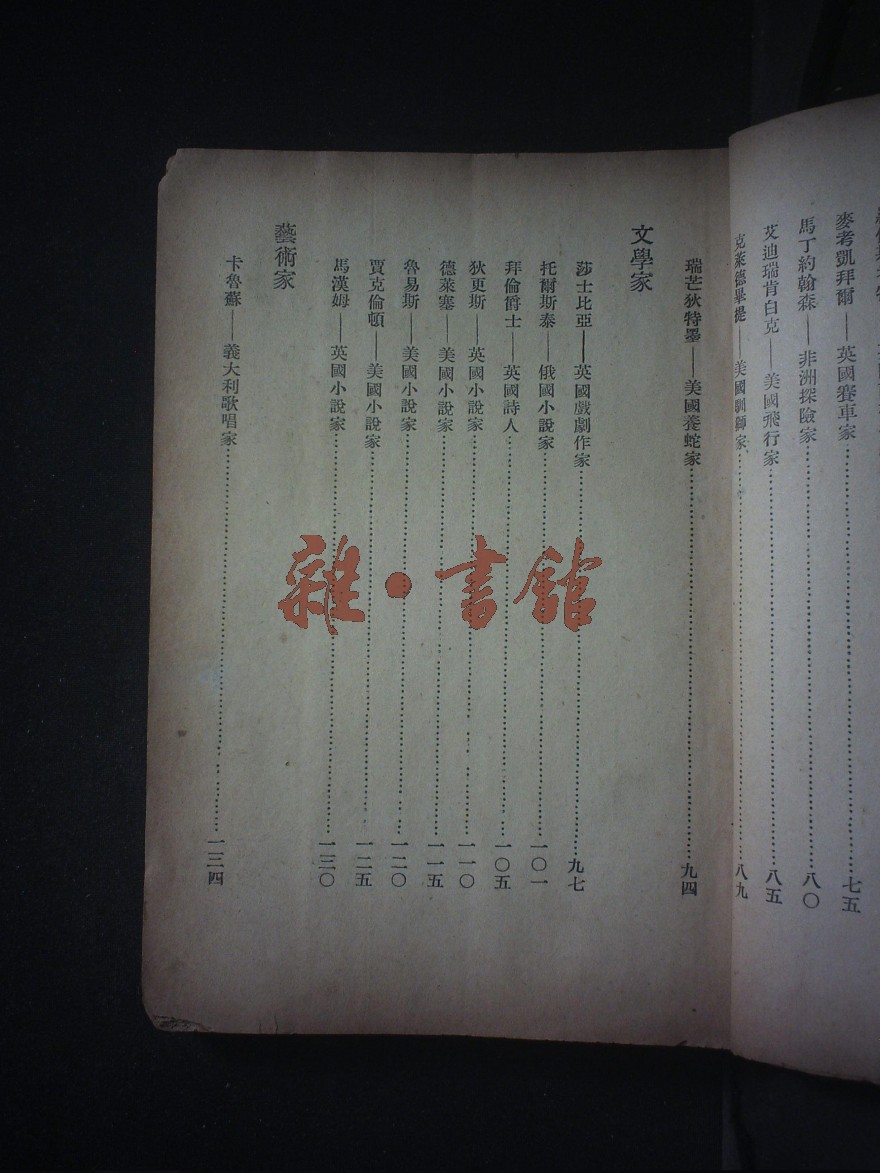 麥考凱拜爾——英國賽車家……七五
馬丁約翰森——非洲探險家……八〇
艾迪瑞肯白克——美國飛行家……八五
克萊德畢提——美國馴獅家……八九
瑞芒狄特墨——美國養蛇家……九四
文學家
莎士比亞——英國戲劇作家……九七
托爾斯泰——俄國小說家……一〇一
拜倫爵士——英國詩人……一〇五
狄更斯——英國小說家……一一〇
德萊塞——美國小說家……一一五
魯易斯——美國小說家……一二〇
賈克倫頓——美國小說家……一二五
馬漢姆 英國小說家……一三〇
藝術家
卡魯蘇——義大利歌唱家……一三四
雜·書館